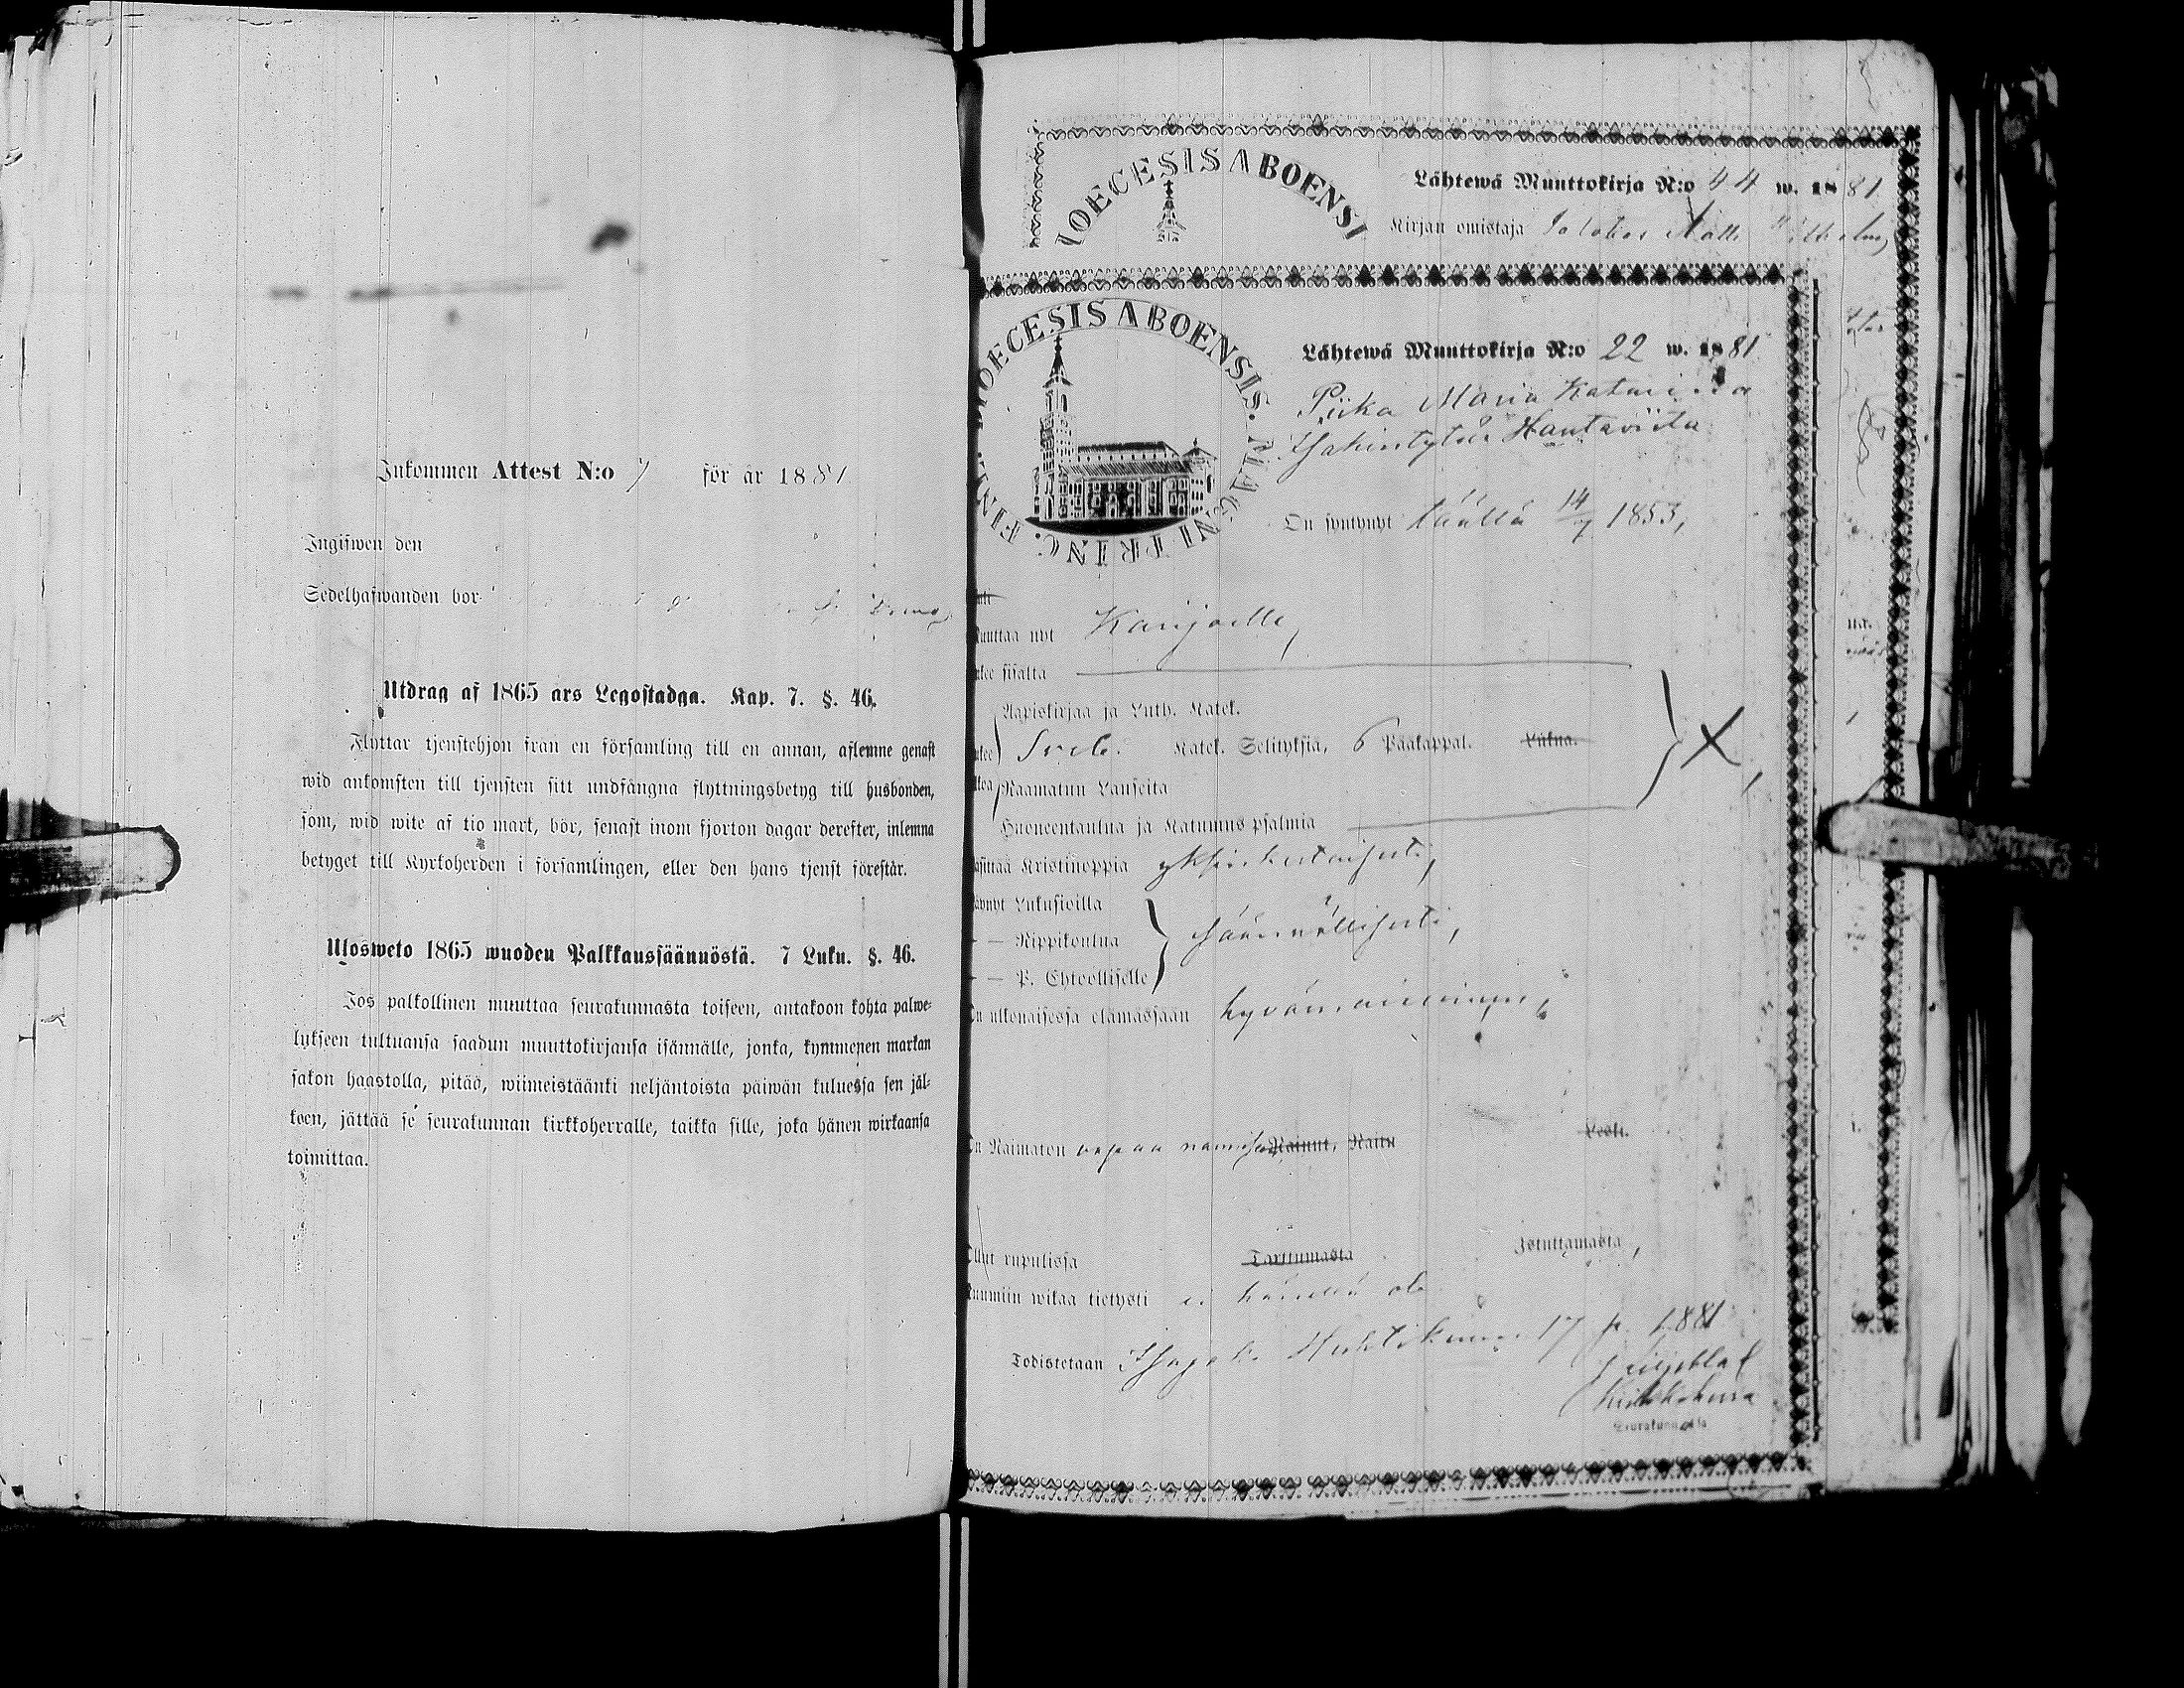 Inkommen Attest N:o 7 för år 1881
Ingifwen den
Sedelhafwanden bor
Utdrag af 1865 års Legostadga. Kap. 7. §. 46.
Flyttar tjenstehjon från en församling till en annan, aflemne genast
wid ankomsten till tjensten sitt undfångna flyttningsbetyg till husbonden,
som, wid wite af tio mark, bör, senast inom fjorton dagar derefter, inlemna
betyget till Kyrkoherden i församlingen, eller den hans tjenst förestår.
Ulosweto 1865 wuoden Palkkaussäännöstä. 7 Luku. §. 46.
Jos palkollinen muuttaa seurakunnasta toiseen, antakoon kohta palwe-
lykseen tultuansa saadun muuttokirjansa isännälle, jonka, kymmenen markan
sakon haastolla, pitää, wiimeistäänki neljäntoista päiwän kuluessa sen jäl-
keen, jättää se seurakunnan kirkkoherralle, taikka sille, joka hänen wirkaansa
toimittaa.
IOECESIS ABOENSI
Lähtewä Muuttokirja N:o 44 w. 1881
Kirjan omistaja Matti Wilhelm
OECESIS ABOENSIS. MAGNI PRINC. FINL.
Lähtewä Muuttokirja N:o 22 w. 1881
Piika Maria Katariina
Isakintytär Hautaviita
On syntynyt täällä 14/7 1853,
uuttaa nyt Karijoelle,
ukee sisältä
Aapiskirjaa ja Luth. Katek.
Katek. Selityksiä, 6 Pääkappal. Lukua.
Raamatun Lauseita
Huoneentaulua ja Katumus psalmia
äsittää Kristinoppia yksinkertaisesti,
äynyt Lukusioilla
— Rippikoulua säännöllisesti,
— P. Ehtoolliselle
n ulkonaisessa elämässään hyvämaineinen,
n Naimaton vapaa naimisen Nainut, Naitu Leski.
llut rupulissa Tarttumasta Istuttamasta,
uumiin wikaa tietysti ei hänellä ole
Todistetaan Huhtikuun 17 p. 1881
Kirkkoherra
Seurakunnassa